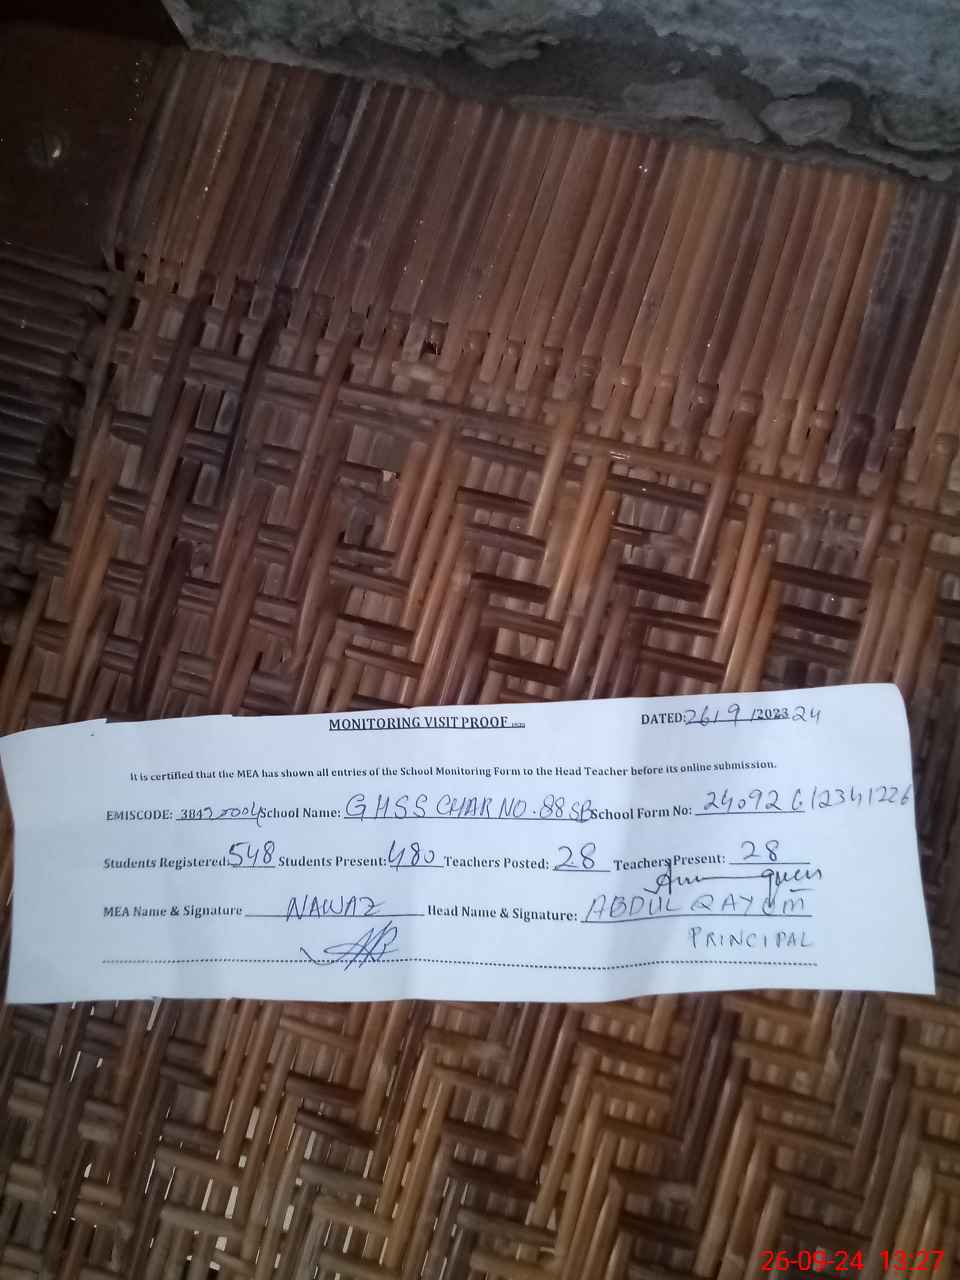 MONITORING VISIT PROOF
DATED: 26/9 /2023 24
It is certified that the MEA has shown all entries of the School Monitoring Form to the Head Teacher before its online submission.
EMISCODE: 38420004 School Name: GHSS CHAK NO. 88 SB School Form No: 24092612341226
Students Registered: 548 Students Present: 480 Teachers Posted: 28 Teachers Present: 28
MEA Name & Signature NAWAZ Head Name & Signature: ABDUL QAYUM
PRINCIPAL
26-09-24 13:27